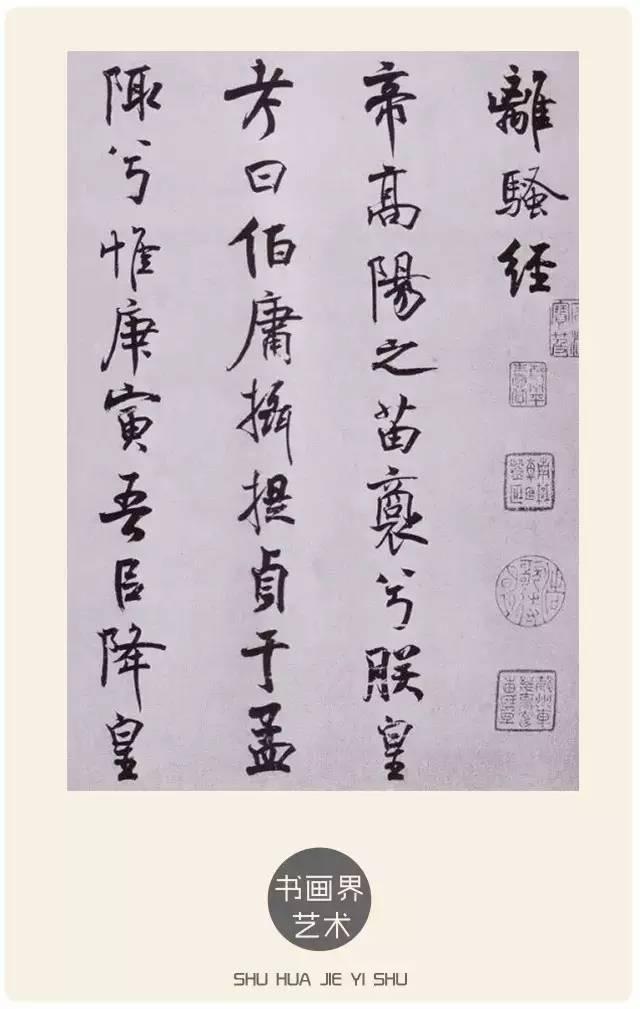 離騷經
帝高陽之苗裔兮朕皇
考曰伯庸攝提貞于孟
陬兮惟庚寅吾㠯降皇
书画界
艺术
SHU HUA JIE YI SHU